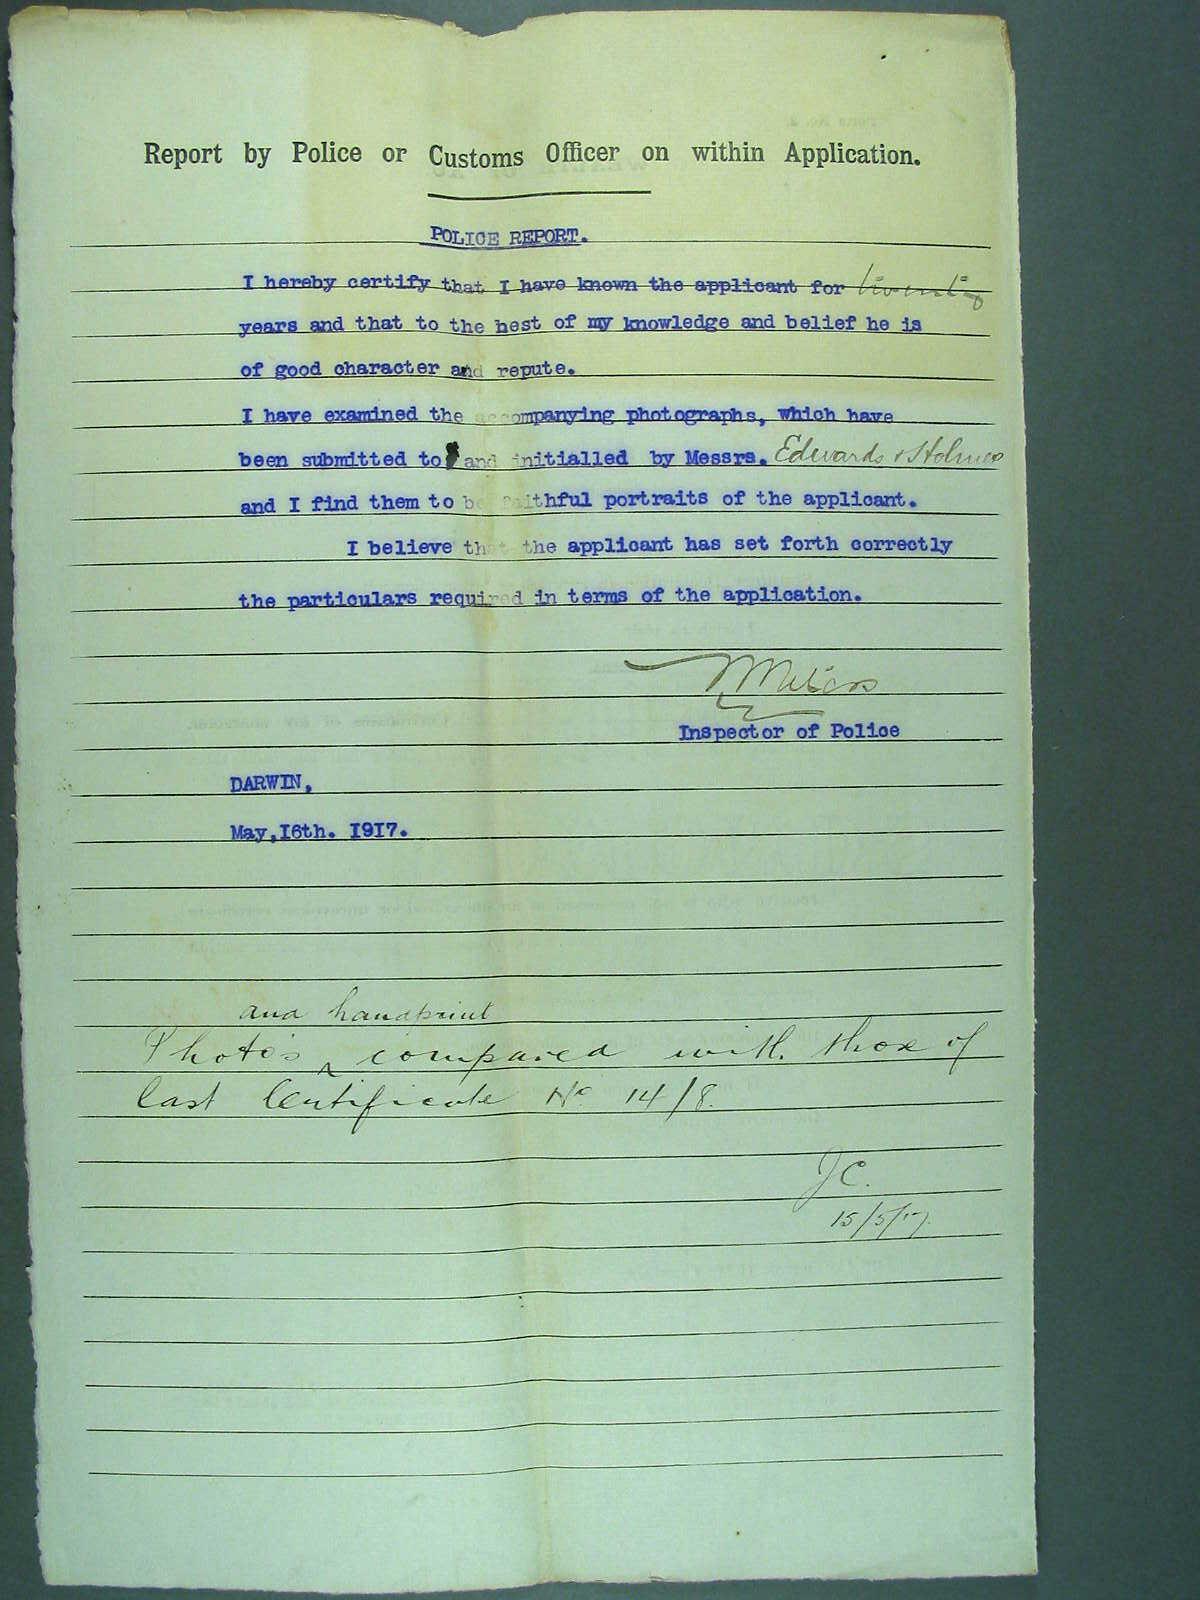 Report by Police or Customs Officer on within Application.
POLICE REPORT.
I hereby certify that I have known the applicant for twenty
years and that to the best of my knowledge and belief he is
of good character and repute.
I have examined the accompanying photographs, which have
been submitted to and initialled by Messrs. Edwards & Holmes
and I find them to be faithful portraits of the applicant.
I believe that the applicant has set forth correctly
the particulars required in terms of the application.
Inspector of Police
DARWIN,
May, 16th. 1917.
and handprint
Photo's ‸ compared with those of
last Certificate No. 14/8.
JC.
15/5/17.